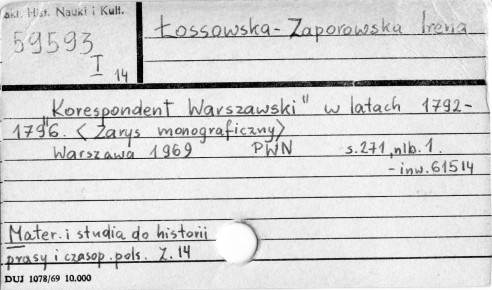 Zakł. Hist. Nauki i Kult.
59593
I
14
Łossowska-Zaporowska Irena
"Korespondent Warszawski" w latach 1792-
1796. <Zarys monograficzny>
Warszawa 1969 PWN s.271, nlb.1.
- inw.61514
Mater. i studia do historii
prasy i czasop. pols. Z.14
DUJ 1078/69 10.000